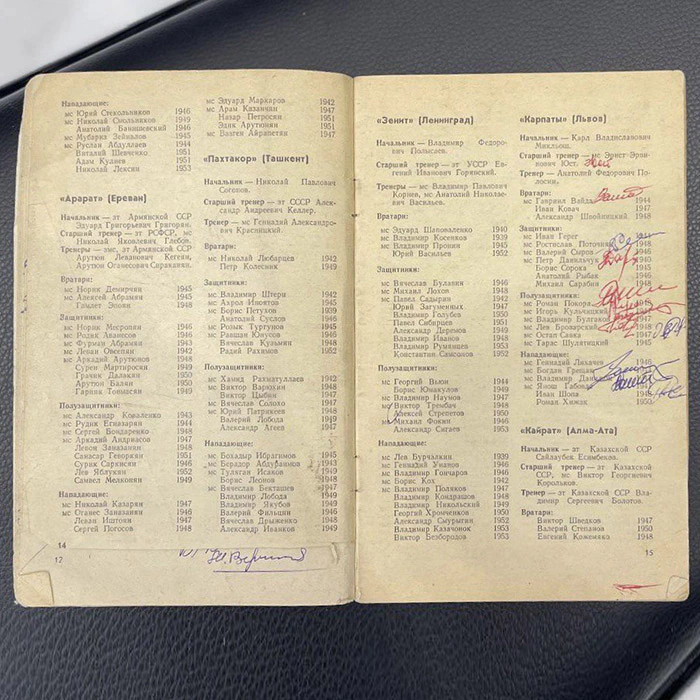 Нападающие:
мс Юрий Стекольников 1946
мс Николай Смольников 1949
Анатолий Банишевский 1946
мс Мубариз Зейналов 1945
мс Руслан Абдуллаев 1944
Виталий Шевченко 1951
Адам Кулиев 1951
Николай Лексин 1953
«Арарат» (Ереван)
Начальник — эт Армянской ССР
Эдуард Григорьевич Григорян.
Старший тренер — эт РСФСР, мс
Николай Яковлевич Глебов.
Тренеры — змс, эт Армянской ССР
Арутюн Леванович Кегеян,
Арутюн Оганесович Сиракаянц.
Вратари:
мс Норик Демирчян 1945
мс Алексей Абрамян 1945
Гамлет Эноян 1948
Защитники:
мс Норик Месропян 1946
мс Родик Аванесов 1946
мс Фурман Абрамян 1943
мс Леван Овеепян 1942
мс Аркадий Арутюнов 1948
Сурен Мартиросян 1949
Грачик Далакян 1950
Арутюн Балян 1950
Гарник Товмасян 1949
Полузащитники:
мс Александр Коваленко 1943
мс Рудик Егназарян 1944
мс Сергей Бондаренко 1948
мс Аркадий Андриасов 1947
Левон Заназанян 1948
Самасар Геворкян 1951
Сурик Саркисян 1946
Лев Яблукян 1952
Самвел Мелконян 1949
Нападающие:
мс Николай Казарян 1947
мс Оганес Заназанян 1946
Леван Иштоян 1947
Сергей Погосов 1948
14
12
мс Эдуард Маркаров 1942
мс Арам Казанчян 1947
Назар Петросян 1951
Эдик Арутюнян 1951
мс Вазген Айрапетян 1947
«Пахтакор» (Ташкент)
Начальник — Николай Павлович
Согонов.
Старший тренер — эт СССР Александр
Андреевич Келлер.
Тренер — мс Геннадий Александрович
Красницкий.
Вратари:
мс Николай Любарцев 1942
Петр Колесник 1949
Защитники:
мс Владимир Штерн 1942
мс Ахрол Иноятов 1942
мс Борис Петухов 1939
Анатолий Суслов 1946
мс Розык Тургунов 1945
мс Равшан Юнусов 1946
Вячеслав Кузьмин 1950
Радий Рахимов 1952
Полузащитники:
мс Хамид Рахматуллаев 1942
мс Виктор Варюхин 1948
Виктор Цыбин 1947
мс Вячеслав Солохо 1947
мс Юрий Патрикеев 1948
Валерий Лобов 1947
Александр Агеев 1947
Нападающие:
мс Боходыр Ибрагимов 1945
мс Берадор Абдураимов 1943
мс Тулягзн Исаков 1949
мс Борис Леонов 1948
мс Вячеслав Бекташев 1947
Владимир Лобода 1949
Владимир Якубов 1949
Валерий Фильцин 1946
Вячеслав Дрыженко 1948
Александр Иванков 1949
«Зенит» (Ленинград)
Начальник — Владимир Федорович
Полысаев.
Старший тренер — эт УССР Евгений
Иванович Горянский.
Тренеры — мс Владимир Павлович
Корнев, мс Анатолий Николаевич
Васильев.
Вратари:
мс Эдуард Шаповаленко 1940
мс Владимир Косенков 1939
мс Владимир Пронин 1945
Юрий Васильев 1952
Защитники:
мс Вячеслав Булавин 1946
мс Михаил Лохов 1948
мс Павел Садырин 1942
Юрий Загуменных 1947
Владимир Голубев 1950
Павел Сибирцев 1951
Александр Деремов 1949
Владимир Иванов 1948
Владимир Румянцев 1953
Константин Самсонов 1952
Полузащитники:
мс Георгий Вьюн 1944
Борис Юнакулов 1949
мс Владимир Наумов 1947
мс Виктор Трембач 1948
мс Алексей Стрепетов 1950
мс Михаил Фокин 1946
Александр Сигаев 1953
Нападающие:
мс Лев Бурчалкин 1939
мс Геннадий Унанов 1946
мс Владимир Гончаров 1946
мс Борис Кох 1942
мс Владимир Поляков 1947
Владимир Кондрашов 1948
Владимир Никольский 1949
Георгий Хромченков 1950
Александр Смурыгин 1952
Владимир Казаченок 1953
Виктор Безбородов 1953
«Карпаты» (Львов)
Начальник — Карл Владиславович
Миклош.
Старший тренер — мс Эрнст Эрвинович
Юст.
Тренер — Анатолий Федорович Полосин.
Вратари:
мс Гавриил Вайда 1944
Иван Ковач 1947
Александр Швойницкий 1948
Защитники:
мс Иван Герег
мс Ростислав Поточняк
мс Валерий Сыров 1946
мс Петр Данильчук
Борис Сорока 1945
Анатолий Рыбак 1946
Михаил Сарабин 1948
Полузащитники:
мс Роман Покора
мс Игорь Кульчицкий
мс Владимир Булгаков
мс Лев Броварский 1948
мс Остап Савка 1947
мс Тарас Шулятицкий 1945
Нападающие:
мс Геннадий Лихачев 1946
мс Богдан Грещак
мс Владимир Данилюк
мс Янош Габовда
Иван Шова 1948
Роман Хиждк 1950
«Кайрат» (Алма-Ата)
Начальник — эт Казахской ССР
Сайлаубек Есимбеков.
Старший тренер — эт Казахской
ССР, мс Виктор Георгиевич
Корольков.
Тренер — эт Казахской ССР Владимир
Сергеевич Болотов.
Вратари:
Виктор Шведков 1947
Валерий Степанов 1950
Евгений Кожемяко 1948
15